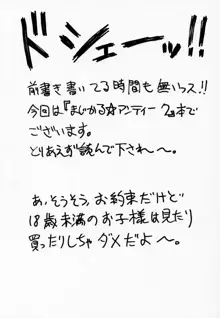 ドジェーッ!!
前書き書いてる時間も無いっス!!
今回は『まじかる☆アンティーク』本で
ございます。
とりあえず読んで下され〜。
あ、そうそう、お約束だけど
18歳未満のお子様は見たり
買ったりしちゃダメだよ〜。